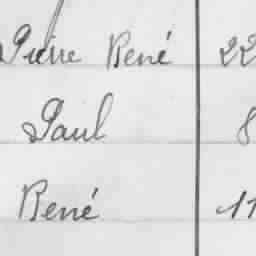 Pierre René 22
Paul 8
René 11